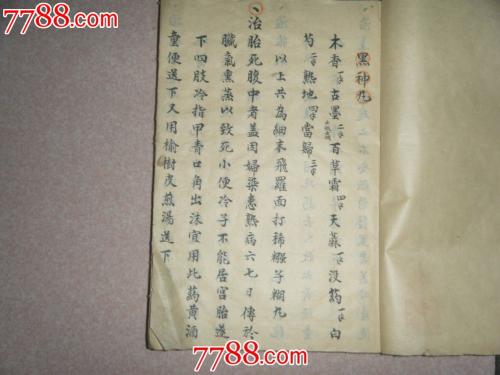 黑神丸
木香 古墨 百草霜 天蔴 没药 白
芍 熟地 當歸
以上共為細末飛羅面打稀糨子糊丸
治胎死腹中者盖因婦染患熱病六七日傳於
臟氣熏蒸以致死小便冷子不能居宫胎遂
下四肢冷指甲青口角出沫宜用此药黄酒
童便送下又用榆樹皮煎湯送下
7788.com
7788.com
7788.com
7788.com